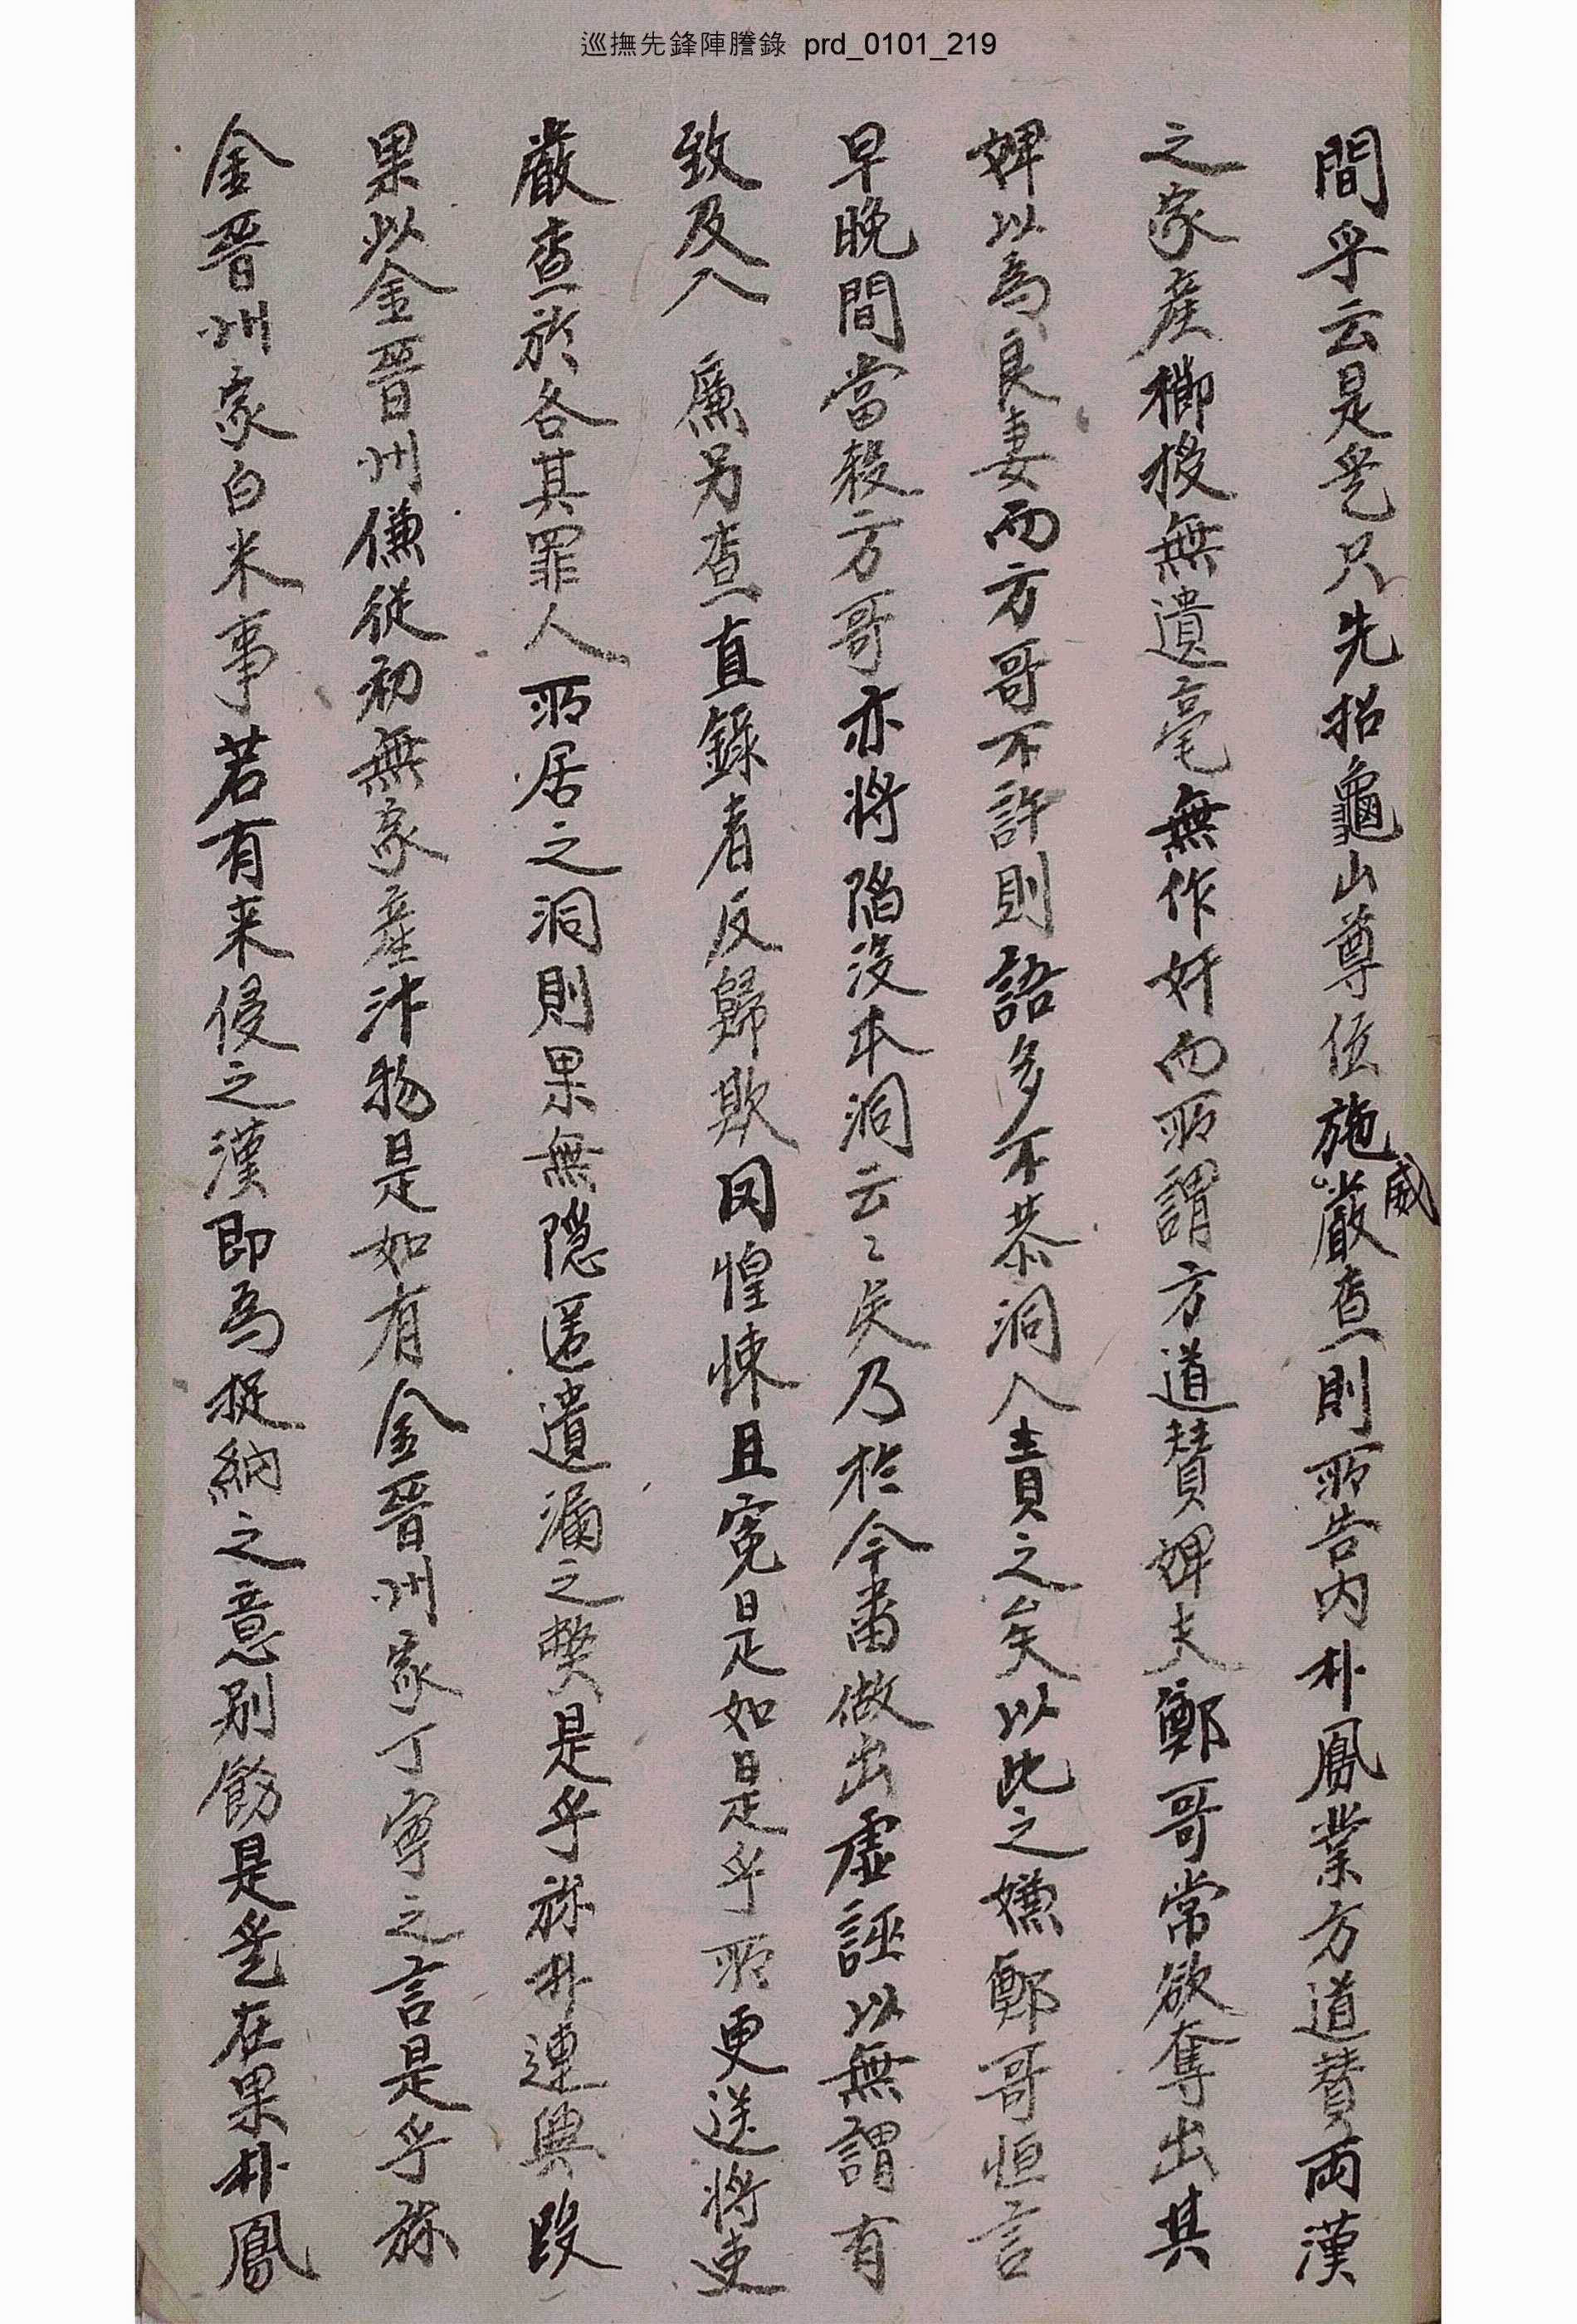 巡撫先鋒陣謄錄 prd_0101_219
間乎云是乞只先招龜山尊位施威嚴查則所告內朴鳳業方道賛兩漢
之家産擲投無遺毫無作奸而所謂方道賛婢夫鄭哥常欲奪出其
婢以爲良妻而方哥不許則語多不恭洞人責之矣以此之嫌鄭哥恒言
早晚間當殺方哥亦将陷沒本洞云〻矣乃於今番做出虛誣以無謂有
致及入 廉另查直錄者反歸欺罔惶悚且寃是如是乎所更送將吏
嚴查於各其罪人所居之洞則果無隱匿遺漏之弊是乎旀朴連興段
果以金晉州傔從初無家産汁物是如有金晉州家丁寧之言是乎旀
金晉州家白米事若有来侵之漢即爲捉納之意別飭是乞在果朴鳳